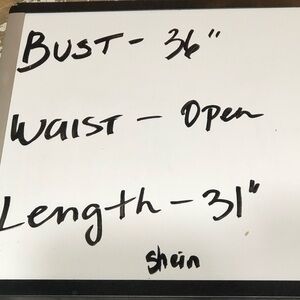 BUST - 36"
WAIST - Open
Length - 31"
shein